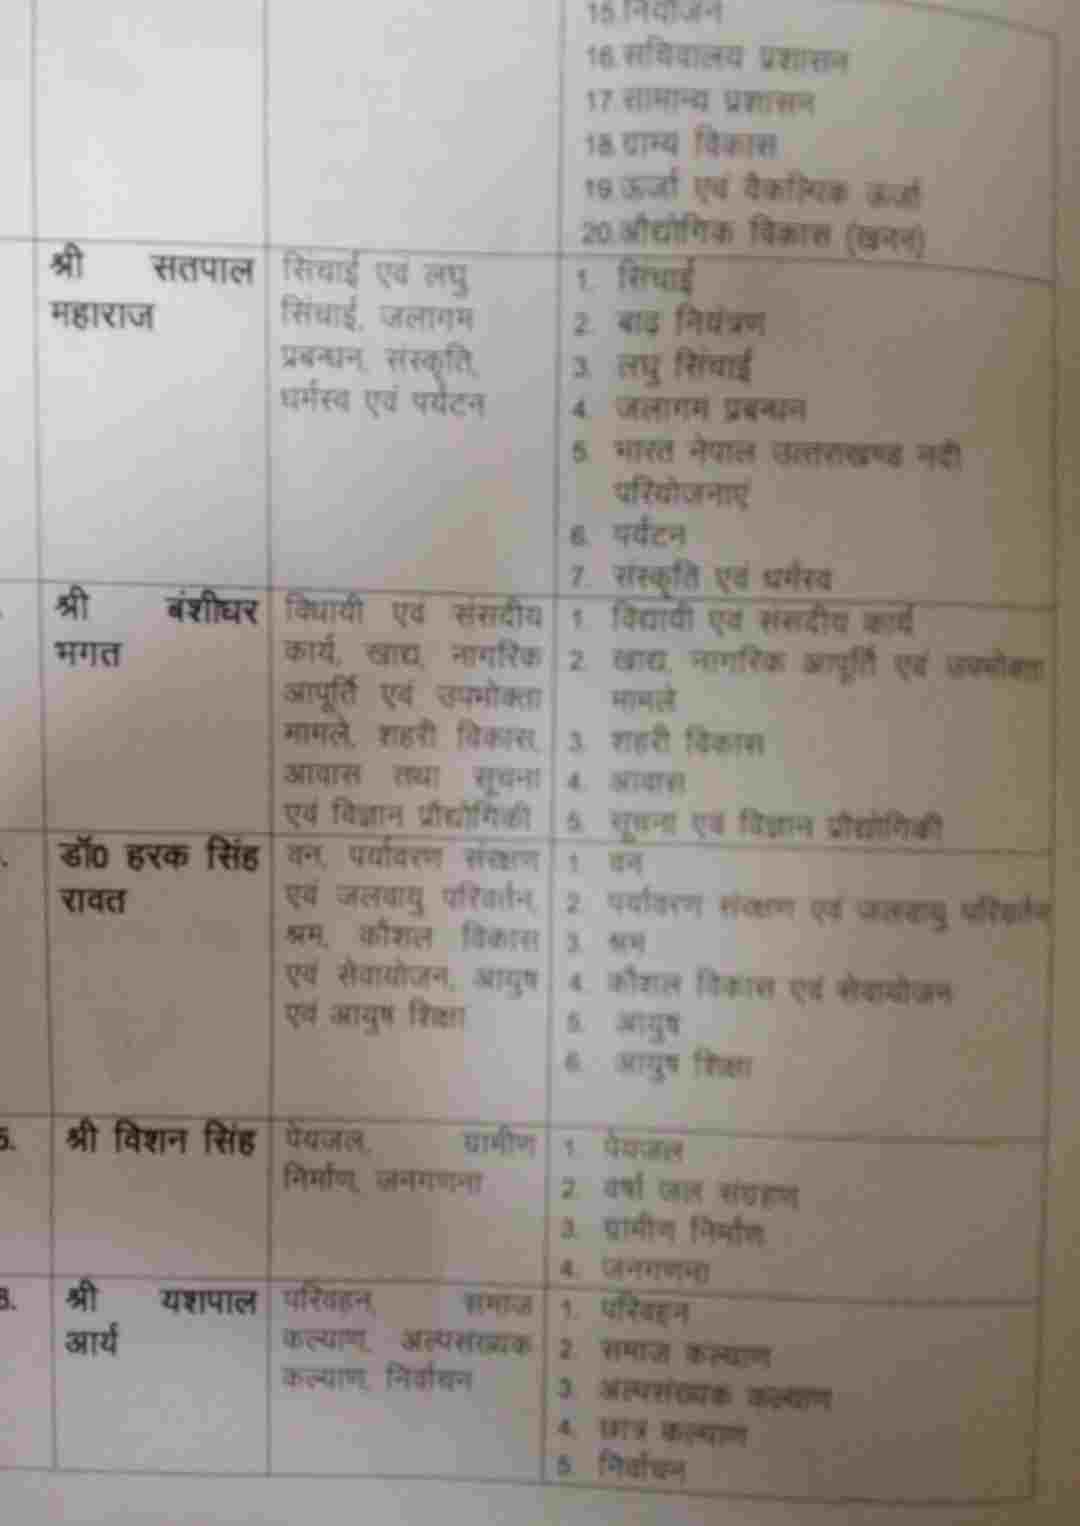 15. नियोजन
16. सचिवालय प्रशासन
17. सामान्य प्रशासन
18. ग्राम्य विकास
19. ऊर्जा एवं वैकल्पिक ऊर्जा
20. औद्योगिक विकास (खनन)
श्री सतपाल
महाराज
सिंचाई एवं लघु
सिंचाई, जलागम
प्रबन्धन, संस्कृति,
धर्मस्व एवं पर्यटन
1. सिंचाई
2. बाढ़ नियंत्रण
3. लघु सिंचाई
4. जलागम प्रबन्धन
5. भारत नेपाल उत्तराखण्ड नदी
परियोजनाएं
6. पर्यटन
7. संस्कृति एवं धर्मस्व
श्री बंशीधर
भगत
विधायी एवं संसदीय
कार्य, खाद्य, नागरिक
आपूर्ति एवं उपभोक्ता
मामले, शहरी विकास,
आवास तथा सूचना
एवं विज्ञान प्रौद्योगिकी
1. विद्यायी एवं संसदीय कार्य
2. खाद्य, नागरिक आपूर्ति एवं उपभोक्ता
मामले
3. शहरी विकास
4. आवास
5. सूचना एवं विज्ञान प्रौद्योगिकी
डॉ0 हरक सिंह
रावत
वन, पर्यावरण संरक्षण
एवं जलवायु परिवर्तन,
श्रम, कौशल विकास
एवं सेवायोजन, आयुष
एवं आयुष शिक्षा
1. वन
2. पर्यावरण संरक्षण एवं जलवायु परिवर्तन
3. श्रम
4. कौशल विकास एवं सेवायोजन
5. आयुष
6. आयुष शिक्षा
5. श्री विशन सिंह
पेयजल, ग्रामीण
निर्माण, जनगणना
1. पेयजल
2. वर्षा जल संग्रहण
3. ग्रामीण निर्माण
4. जनगणना
6. श्री यशपाल
आर्य
परिवहन, समाज
कल्याण, अल्पसंख्यक
कल्याण, निर्वाचन
1. परिवहन
2. समाज कल्याण
3. अल्पसंख्यक कल्याण
4. छात्र कल्याण
5. निर्वाचन